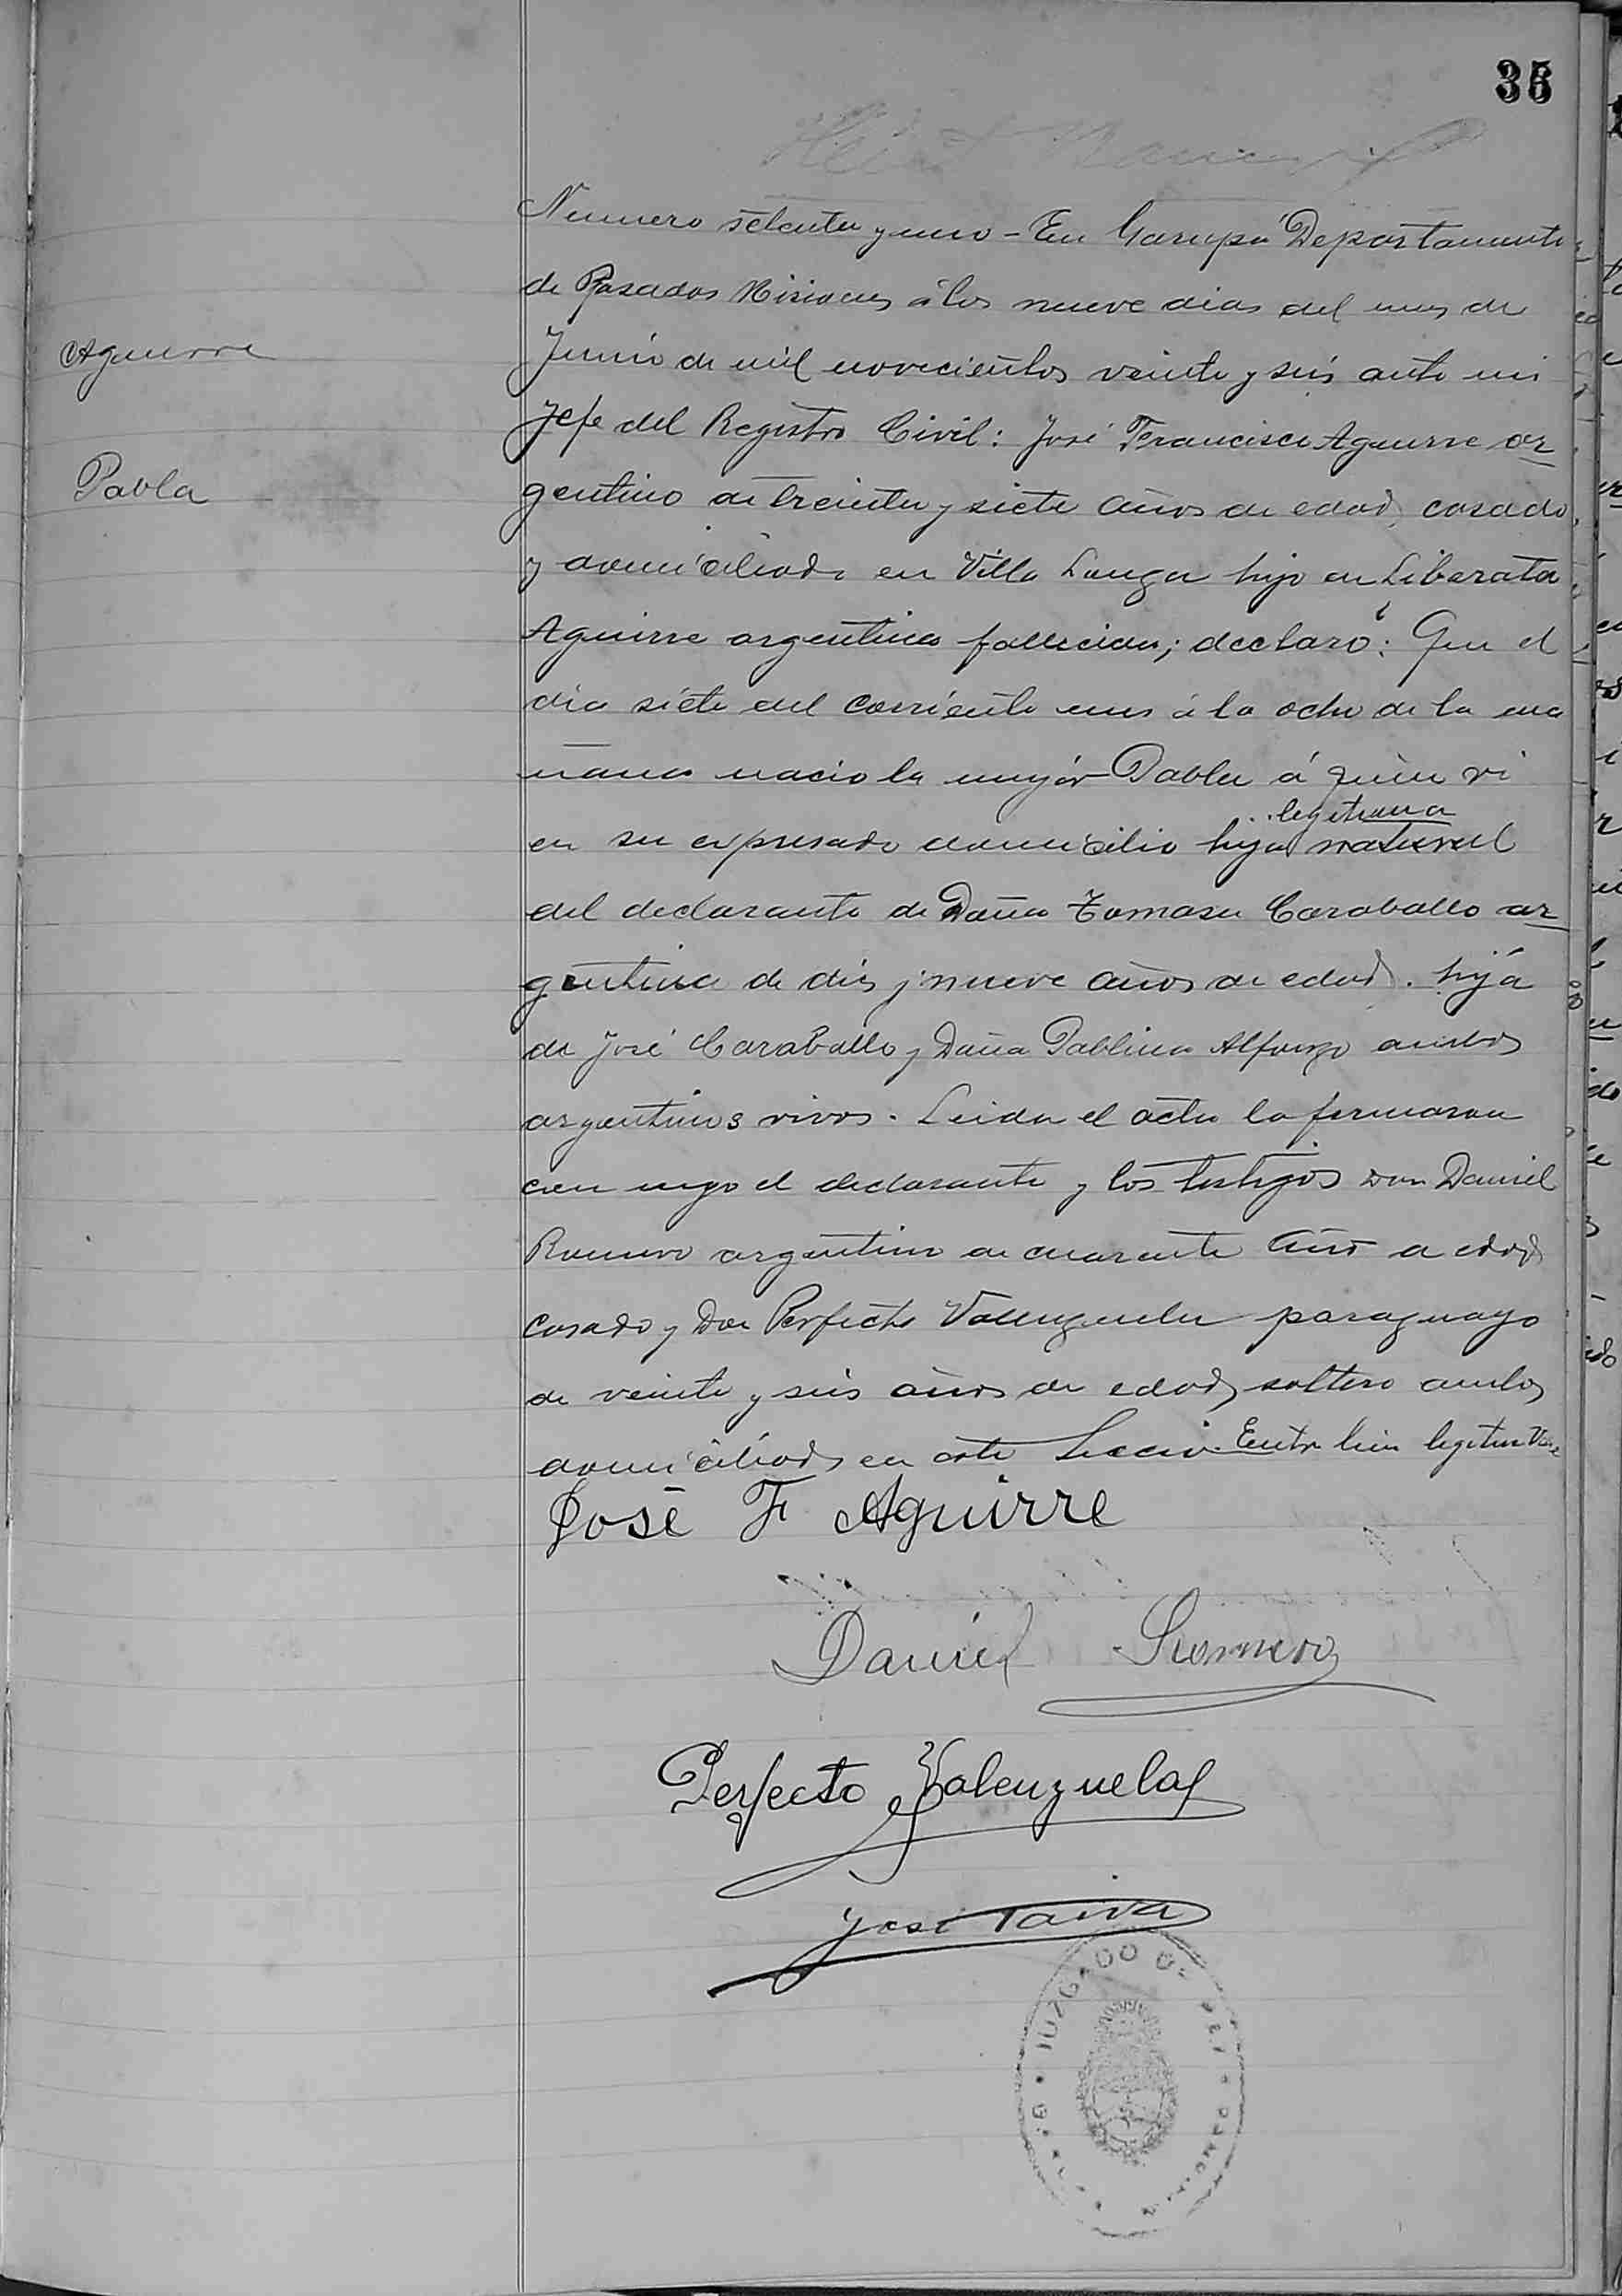 36
Numero setenta y uno - En Garupá Departamento
de Posadas Misiones á los nueve dias del mes de
Aguirre
Junio de mil novecientos veinte y seis ante mi
Jefe del Registro Civil: José Francisco Aguirre ar
Pabla
gentino de treinta y siete años de edad, casado
y domiciliado en Villa Langa hijo de Liberata
Aguirre argentina fallecida; declaró: Que el
dia siete del corriente mes á la ocho de la ma
ñana nacio la mujér Pabla á quien vi
legitima
en su expresado domicilio hija natural
del declarante de Doña Tomasa Caraballo ar
gentina de dies y nueve años de edad. hija
de José Caraballo y Doña Pablina Alfonzo ambos
argentinos vivos. Leida el acta la firmaron
con migo el declarante y los testigos Don Daniel
Romero argentino de cuarenta año de edad
casado y Don Perfecto Valenzuela paraguayo
de veinte y seis años de edad, soltero ambos
domiciliados en esta Sección. Entre linia legitima Vale
José F Aguirre
Daniel Romero
Perfecto Valenzuela
José Paiva
JUZGADO DE